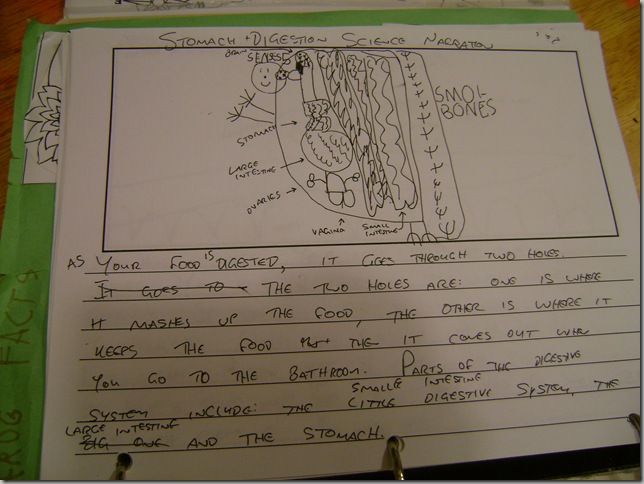 STOMACH + DIGESTION SCIENCE NARRATION
BRAIN
SENSES
SMOL
BONES
STOMACH
LARGE
INTESTING
OVARIES
VAGINA
SMALL
INTESTINE
AS YOUR FOOD IS DIGESTED, IT GOES THROUGH TWO HOLES.
IT GOES TO THE TWO HOLES ARE: ONE IS WHERE
IT MASHES UP THE FOOD, THE OTHER IS WHERE IT
KEEPS THE FOOD THE IT COMES OUT WHEN
YOU GO TO THE BATHROOM. PARTS OF THE DIGESTIVE
SMALLE INTESTING
SYSTEM INCLUDE: THE LITTLE DIGESTIVE SYSTEM, THE
LARGE INTESTING
BIG ONE AND THE STOMACH.
FACTS